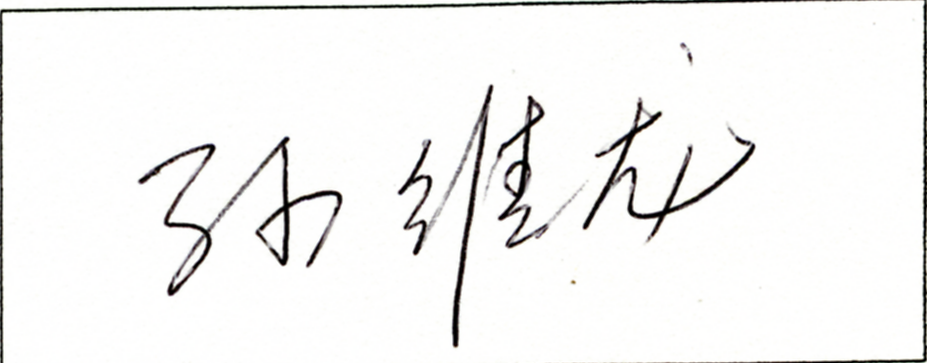 孙维龙